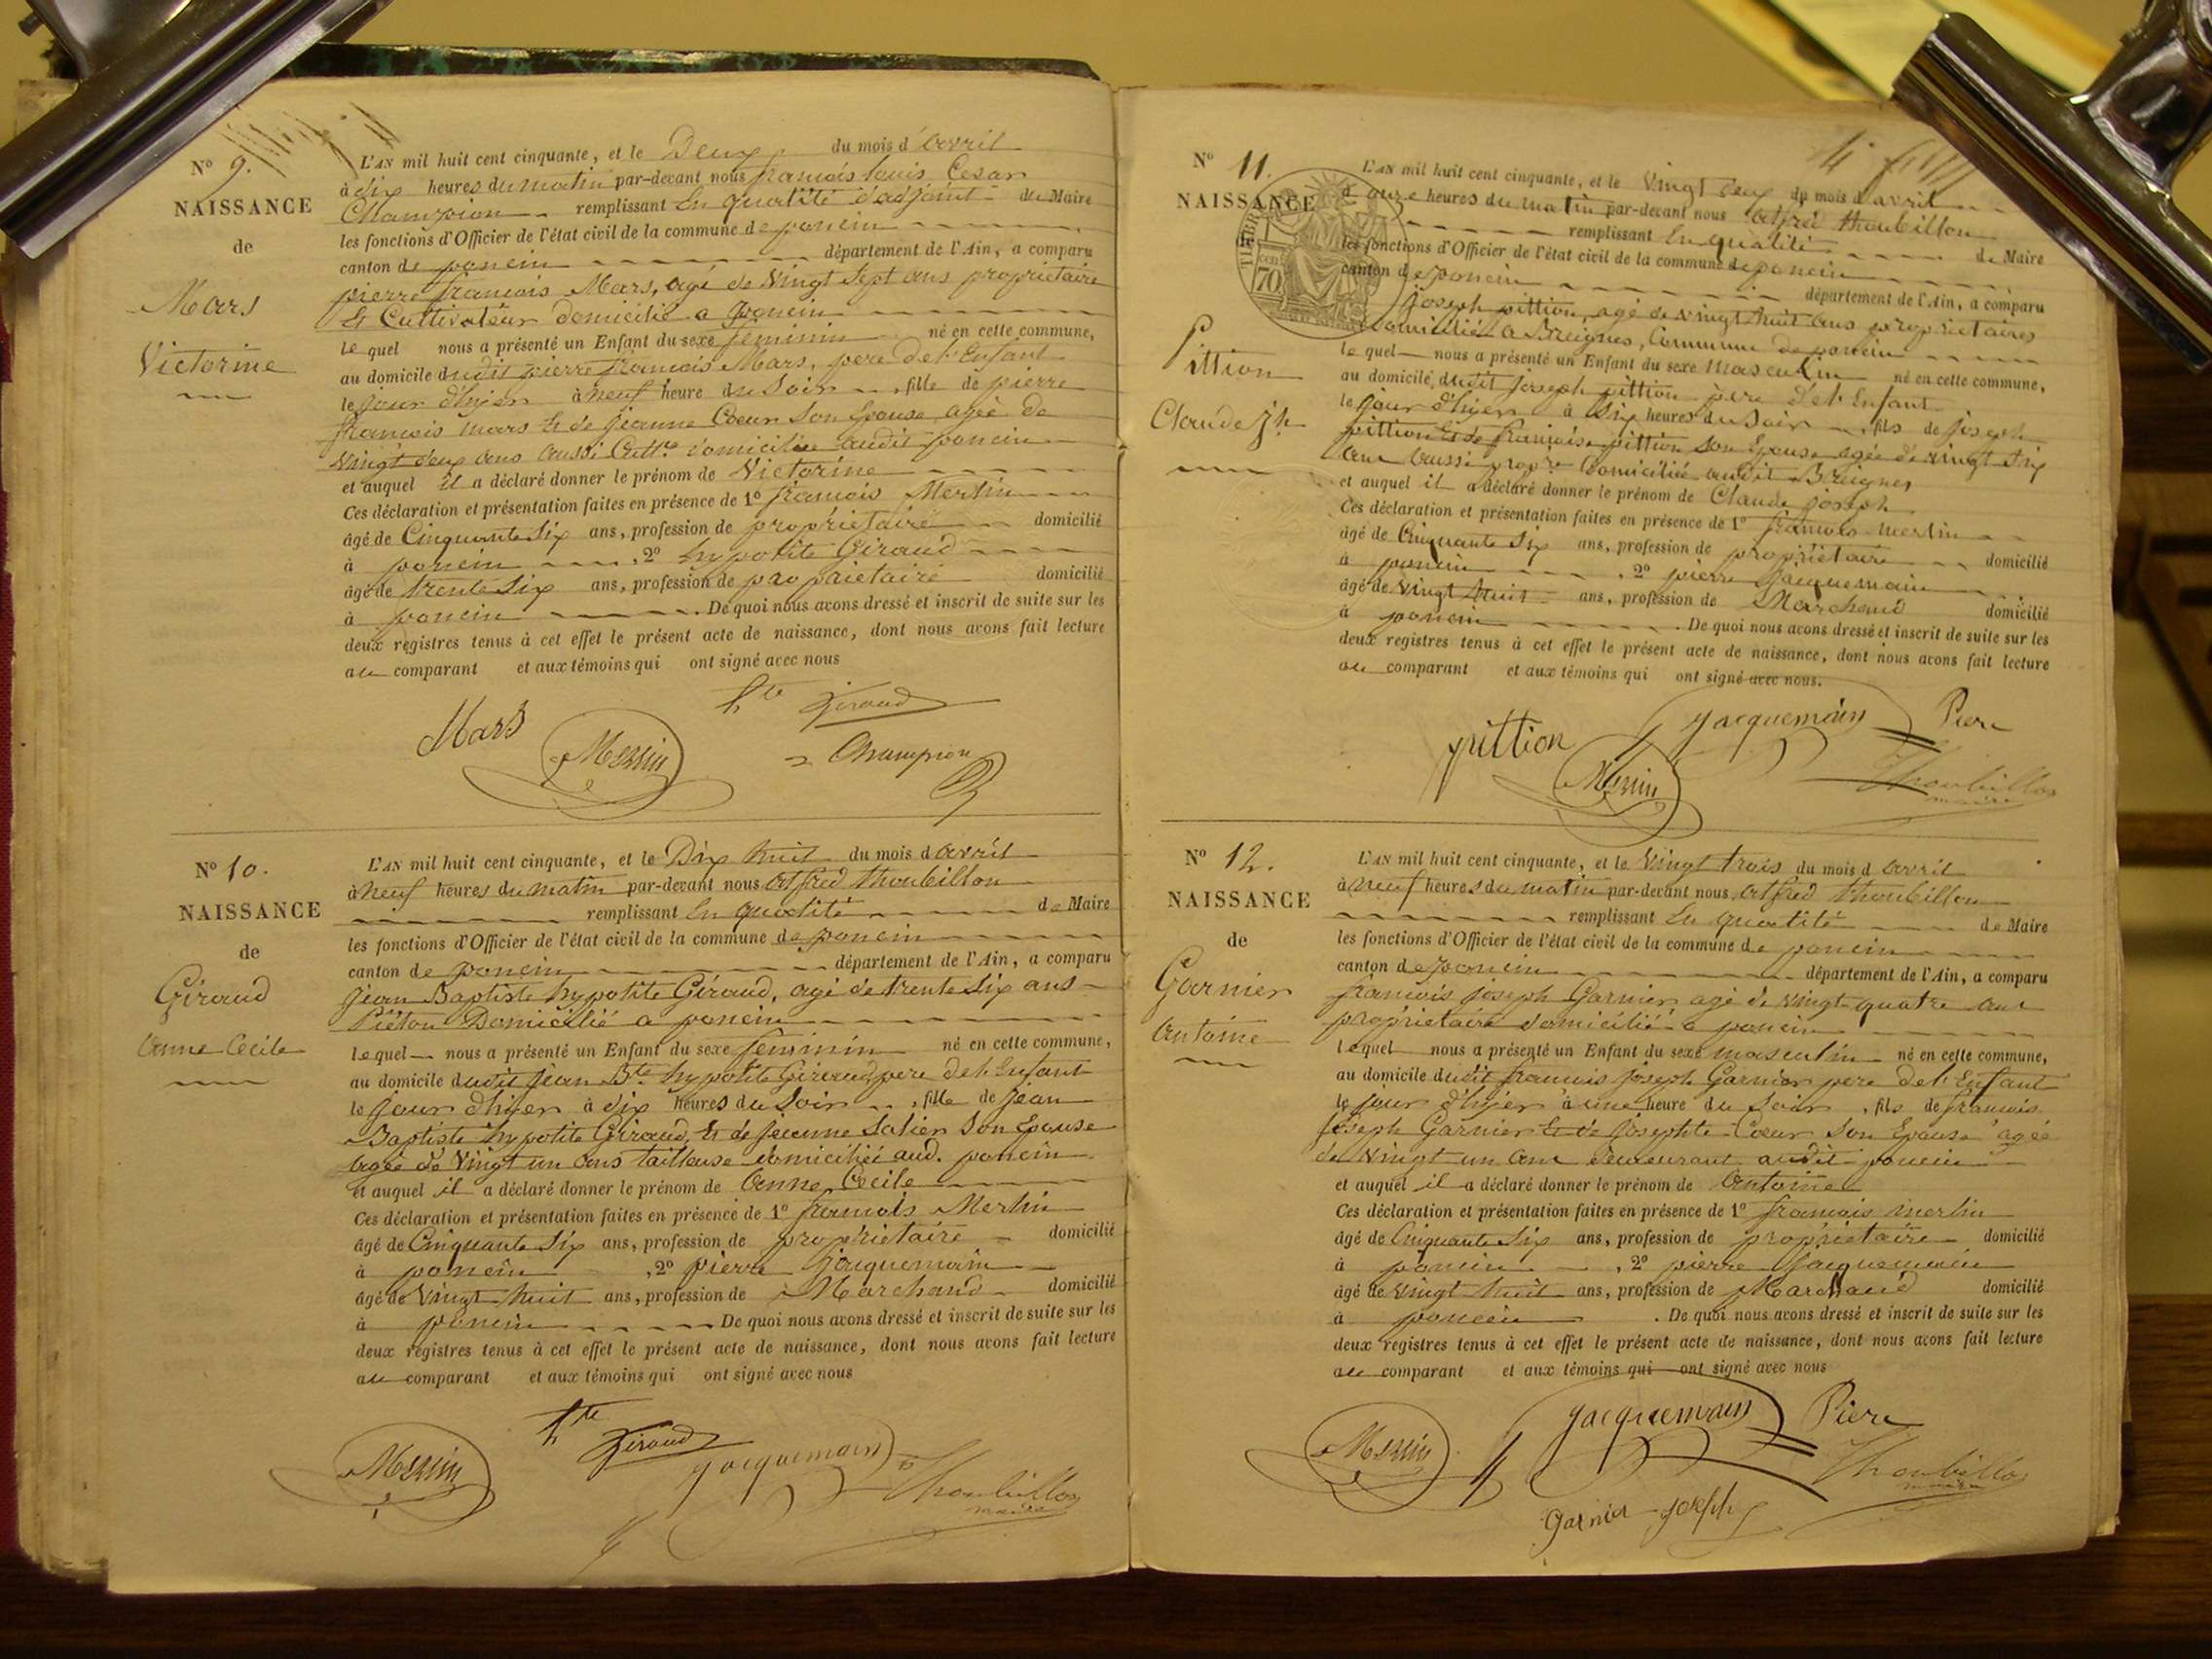 N° 9.
NAISSANCE
de
Mars
Victorine
L'AN mil huit cent cinquante, et le Deux du mois d'avril
à dix heures du matin par-devant nous francois louis Cesar
Champion remplissant En qualité d'adjoint du Maire
les fonctions d'Officier de l'état civil de la commune de poncin
canton de poncin département de l'Ain, a comparu
pierre francois Mars, agé de Vingt Sept ans propriétaire
Et Cultivateur domicilié a poncin
lequel nous a présenté un Enfant du sexe féminin né en cette commune,
au domicile dudit pierre francois Mars, pere de l'Enfant
le jour d'hyer à neuf heure du Soir, fille de pierre
francois mars Et de jeanne Coeur Son Epouse, agée de
Vingt deux ans aussi Cultre domiciliée audit poncin
et auquel il a déclaré donner le prénom de Victorine
Ces déclaration et présentation faites en présence de 1° francois Merlin
âgé de Cinquante Six ans, profession de propriétaire domicilié
à poncin, 2° hypolite Giraud
âgé de trente Six ans, profession de propriétaire domicilié
à poncin. De quoi nous avons dressé et inscrit de suite sur les
deux registres tenus à cet effet le présent acte de naissance, dont nous avons fait lecture
au comparant et aux témoins qui ont signé avec nous
Mars hte Giraud
Merlin Champion
N° 10.
NAISSANCE
de
Giraud
Anne Cecile
L'AN mil huit cent cinquante, et le Dix huit du mois d avril
à neuf heures du matin par-devant nous alfred thoubillon
remplissant En qualité de Maire
les fonctions d'Officier de l'état civil de la commune de poncin
canton de poncin département de l'Ain, a comparu
jean Baptiste hypolite Giraud, agé de trente Six ans
Piéton Domicilié a poncin
lequel nous a présenté un Enfant du sexe feminin né en cette commune,
au domicile dudit jean Bte hypolite Giraud pere de l'Enfant
le jour d'hyer à dix heures du Soir, fille de jean
Baptiste hypolite Giraud, Et de jeanne Son Epouse
agée de Vingt un ans tailleuse domiciliée aud. poncin
et auquel il a déclaré donner le prénom de anne Cecile
Ces déclaration et présentation faites en présence de 1° francois Merlin
âgé de Cinquante Six ans, profession de propriétaire domicilié
à poncin, 2° pierre jacquemain
âgé de Vingt huit ans, profession de Marchand domicilié
à poncin De quoi nous avons dressé et inscrit de suite sur les
deux registres tenus à cet effet le présent acte de naissance, dont nous avons fait lecture
au comparant et aux témoins qui ont signé avec nous
hte Giraud
Merlin jacquemain Thoubillon
maire
N° 11.
NAISSANCE
de
Pittion
Claude jh
TIMBRE
70
L'AN mil huit cent cinquante, et le Vingt deux du mois d avril
à onze heures du matin par-devant nous alfred thoubillon
remplissant En qualité de Maire
les fonctions d'Officier de l'état civil de la commune de poncin
canton de poncin département de l'Ain, a comparu
joseph pittion, agé de vingt huit ans propriétaires
domicilié a Breignes, Commune de poncin
lequel nous a présenté un Enfant du sexe masculin né en cette commune,
au domicile dudit joseph pittion père de l'Enfant
le jour d'hyer à Six heures du Soir, fils de joseph
pittion Et de francoise pittion Son Epouse agée de vingt Six
ans aussi propre domiciliée audit Breignes
et auquel il a déclaré donner le prénom de Claude joseph
Ces déclaration et présentation faites en présence de 1° francois merlin
âgé de Cinquante Six ans, profession de propriétaire domicilié
à poncin, 2° pierre jacquemain
âgé de vingt huit ans, profession de Marchand domicilié
à poncin. De quoi nous avons dressé et inscrit de suite sur les
deux registres tenus à cet effet le présent acte de naissance, dont nous avons fait lecture
au comparant et aux témoins qui ont signé avec nous.
pittion jacquemain Piere
Merlin Thoubillon
maire
N° 12.
NAISSANCE
de
Garnier
antoine
L'AN mil huit cent cinquante, et le Vingt trois du mois d avril
à neuf heures du matin par-devant nous alfred thoubillon
remplissant En qualité de Maire
les fonctions d'Officier de l'état civil de la commune de poncin
canton de poncin département de l'Ain, a comparu
francois joseph Garnier agé de vingt quatre ans
propriétaire domicilié a poncin
lequel nous a présenté un Enfant du sexe masculin né en cette commune,
au domicile dudit francois joseph Garnier pere de l'Enfant
le jour d'hyer à une heure du Soir, fils de francois
joseph Garnier Et de josephte Coeur Son Epouse agée
de vingt un ans demeurant audit poncin
et auquel il a déclaré donner le prénom de antoine
Ces déclaration et présentation faites en présence de 1° francois merlin
âgé de Cinquante Six ans, profession de propriétaire domicilié
à poncin, 2° pierre jacquemain
âgé de vingt huit ans, profession de Marchand domicilié
à poncin. De quoi nous avons dressé et inscrit de suite sur les
deux registres tenus à cet effet le présent acte de naissance, dont nous avons fait lecture
au comparant et aux témoins qui ont signé avec nous
Merlin jacquemain Piere
Thoubillon
maire
garnier joseph